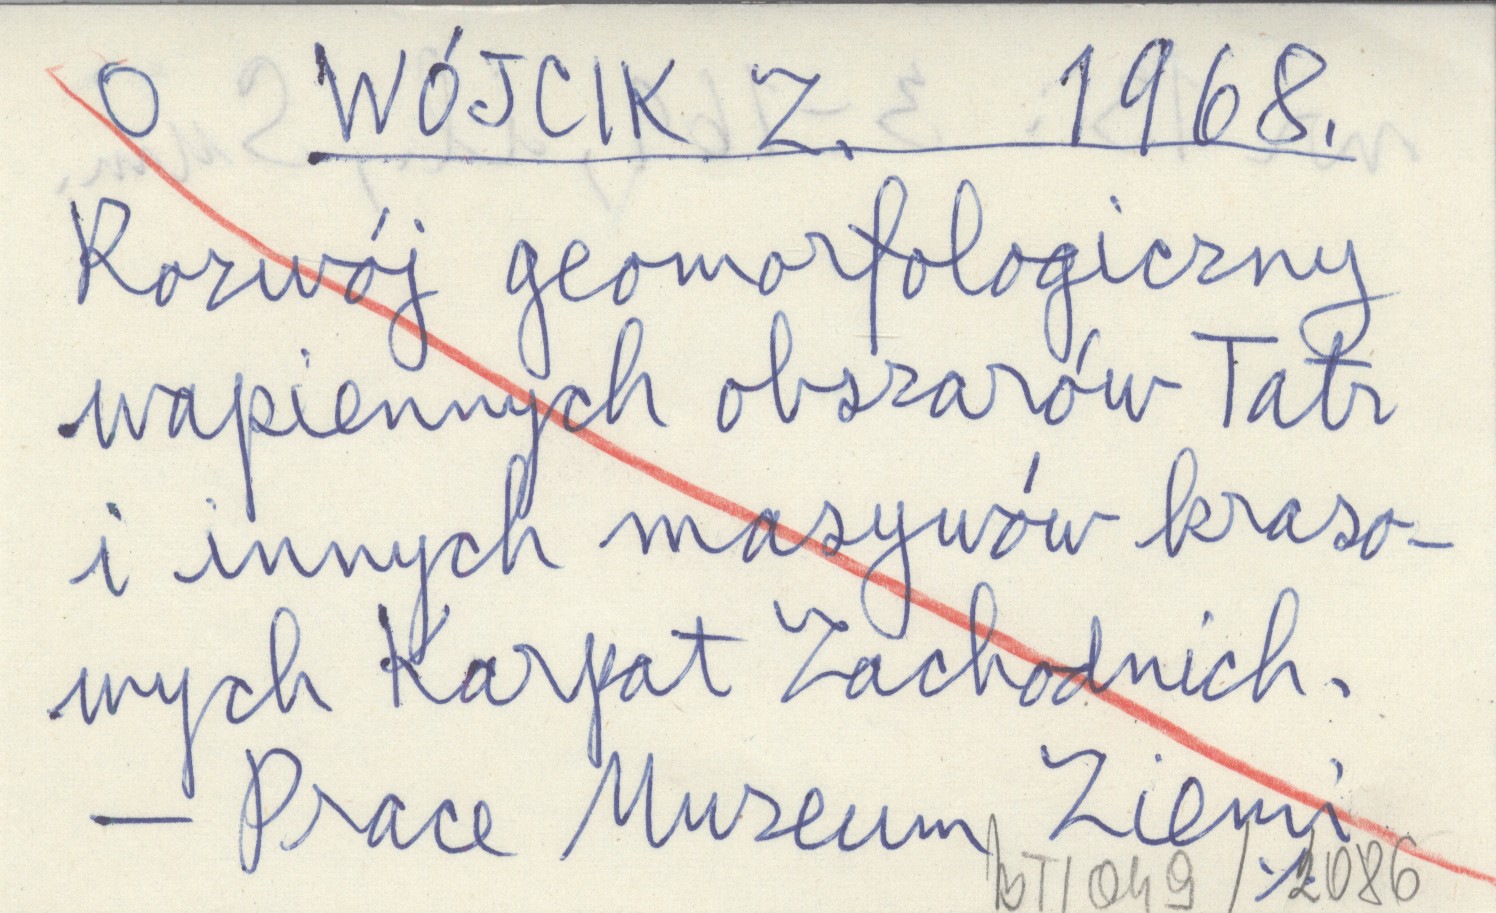 O WÓJCIK Z. 1968.
Rozwój geomorfologiczny
wapiennych obszarów Tatr
i innych masywów kraso-
wych Karpat Zachodnich.
— Prace Muzeum Ziemi
/049 / 2086